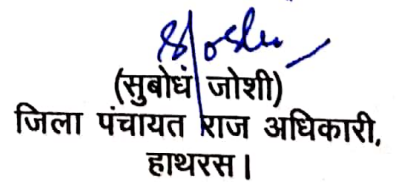 (सुबोध जोशी)
जिला पंचायत राज अधिकारी,
हाथरस।